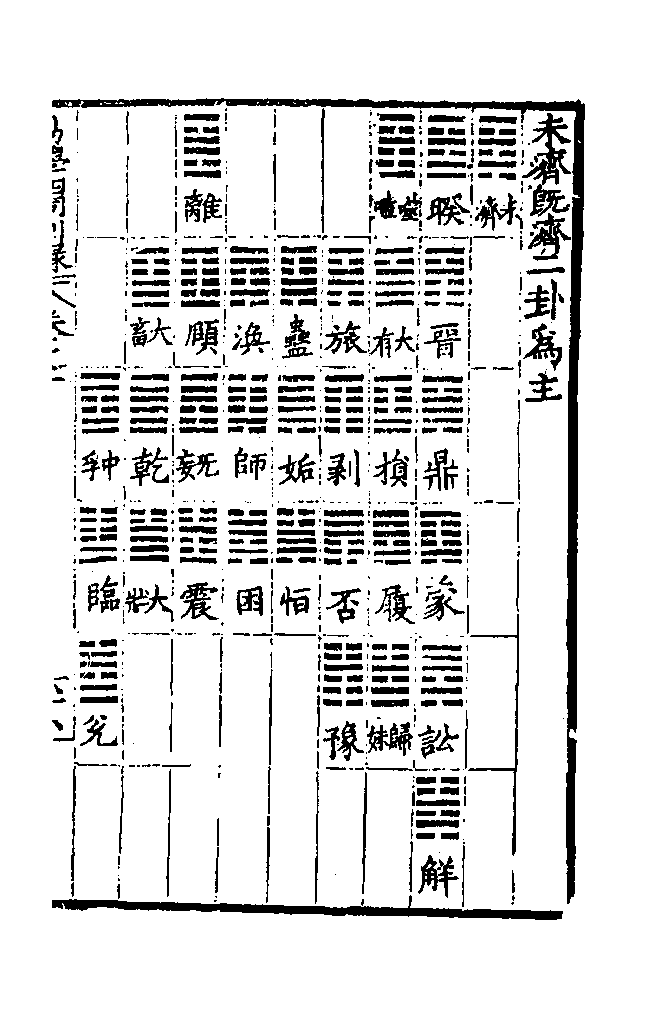 未濟旣濟二卦爲主
未濟 睽 噬嗑 離
晉 大有 旅 蠱 渙 頤 大畜
鼎 損 剥 姤 師 无妄 乾 中孚
蒙 履 否 恒 困 震 大壯 臨
訟 歸妹 豫 兌
解